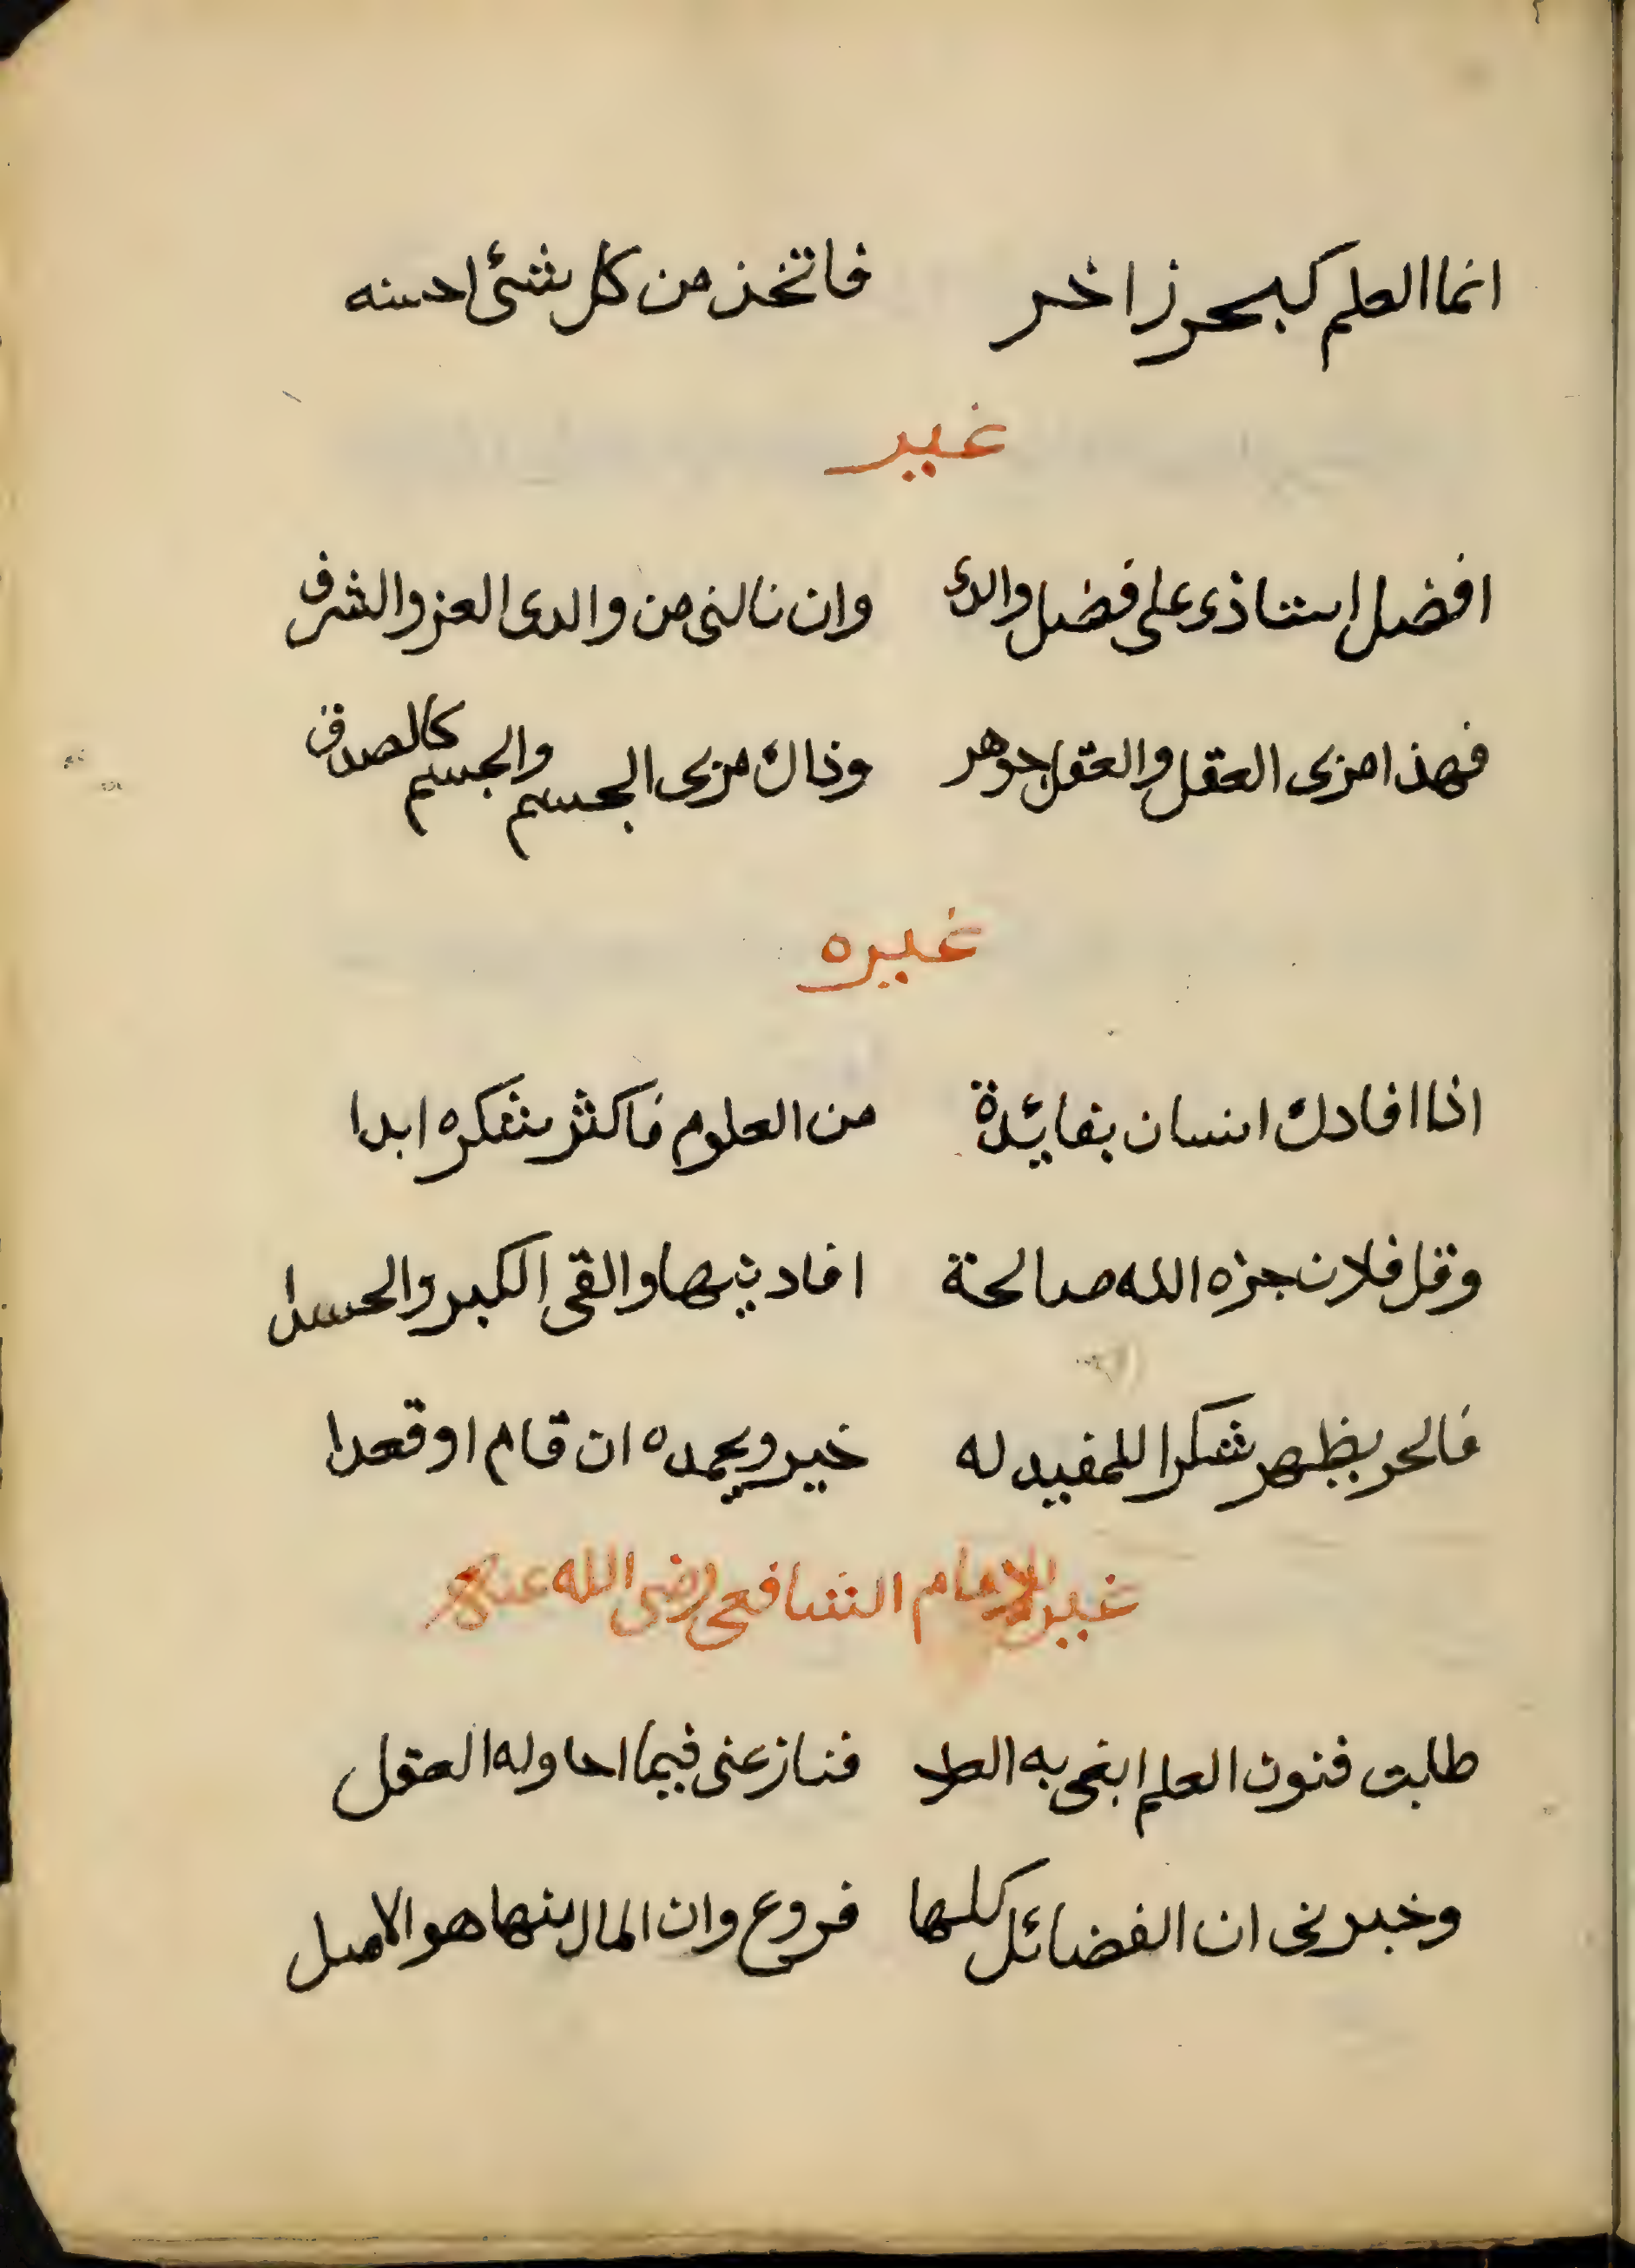 انما العلم كبحر زاخر فاتخذ من كل شئ احسنه
غير
افضل استاذى على فضل والدى وان نالنى من والدى العز والشرف
فهذا مربى العقل والعقل جوهر وذاك مربى الجسم والجسم كالصدف
غيره
اذا افادك انسان بفائدة من العلوم فاكثر شكره ابدا
وقل فلان جزه الله صالحة افادنيها والقى الكبر والحسدا
فالحر يظهر شكرا للمفيد له خير ويحمده ان قام او قعدا
غير للامام الشافعى رضى الله عنه
طلبت فنون العلم ابغى به العلا فنازعنى فيما احاوله العقل
وخبرنى ان الفضائل كلها فروع وان المال منها هو الاصل